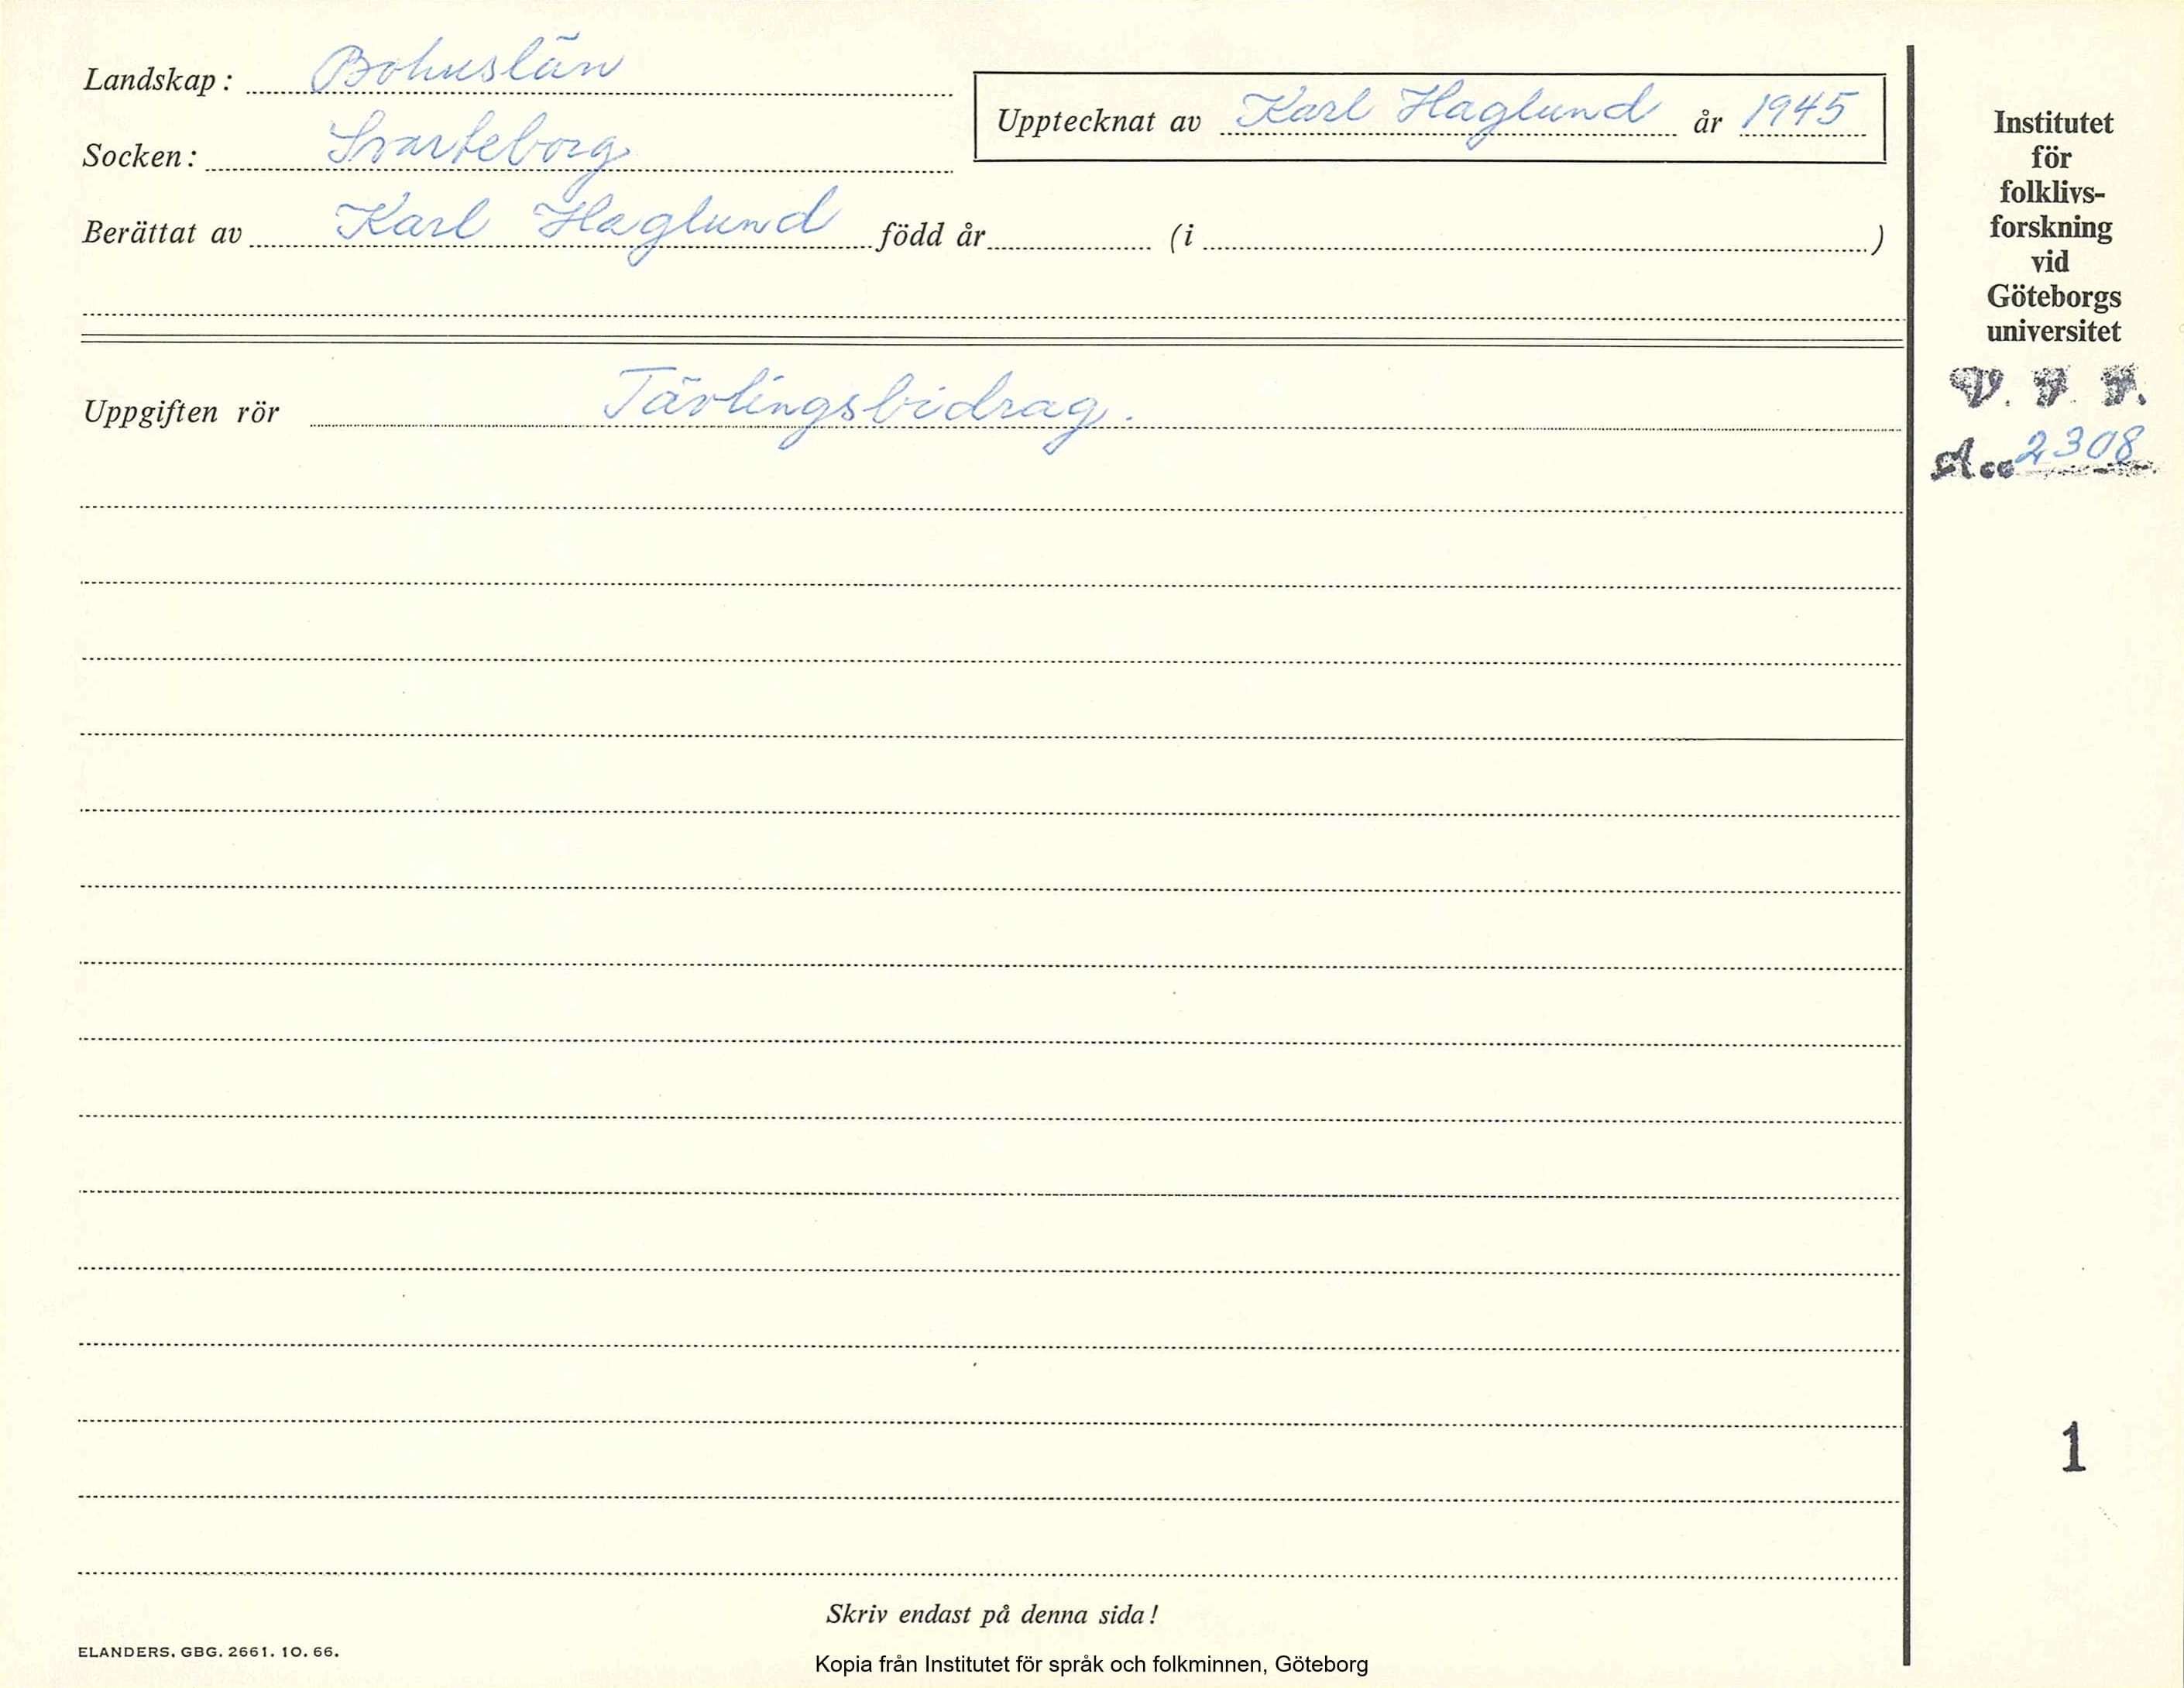 Landskap: Bohuslän
Socken: Svarteborg
Berättat av Karl Haglund född år (i )
Upptecknat av Karl Haglund år 1945
Uppgiften rör Tävlingsbidrag.
Institutet
för
folklivs-
forskning
vid
Göteborgs
universitet
V. F. F.
Acc 2308
1
Skriv endast på denna sida!
ELANDERS. GBG. 2661. 10. 66.
Kopia från Institutet för språk och folkminnen, Göteborg